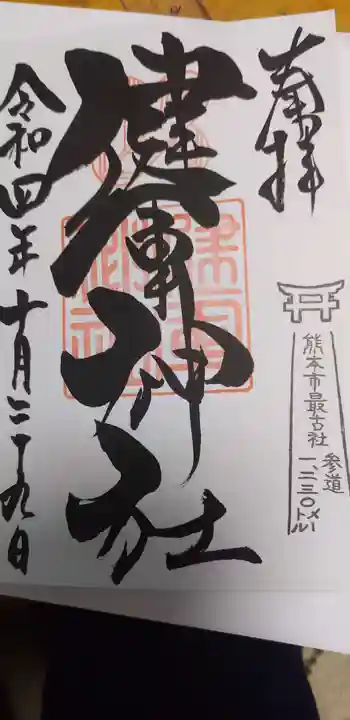 奉拝
熊本市最古社
参道
一、二三〇メートル
健軍神社
令和四年十月二十九日